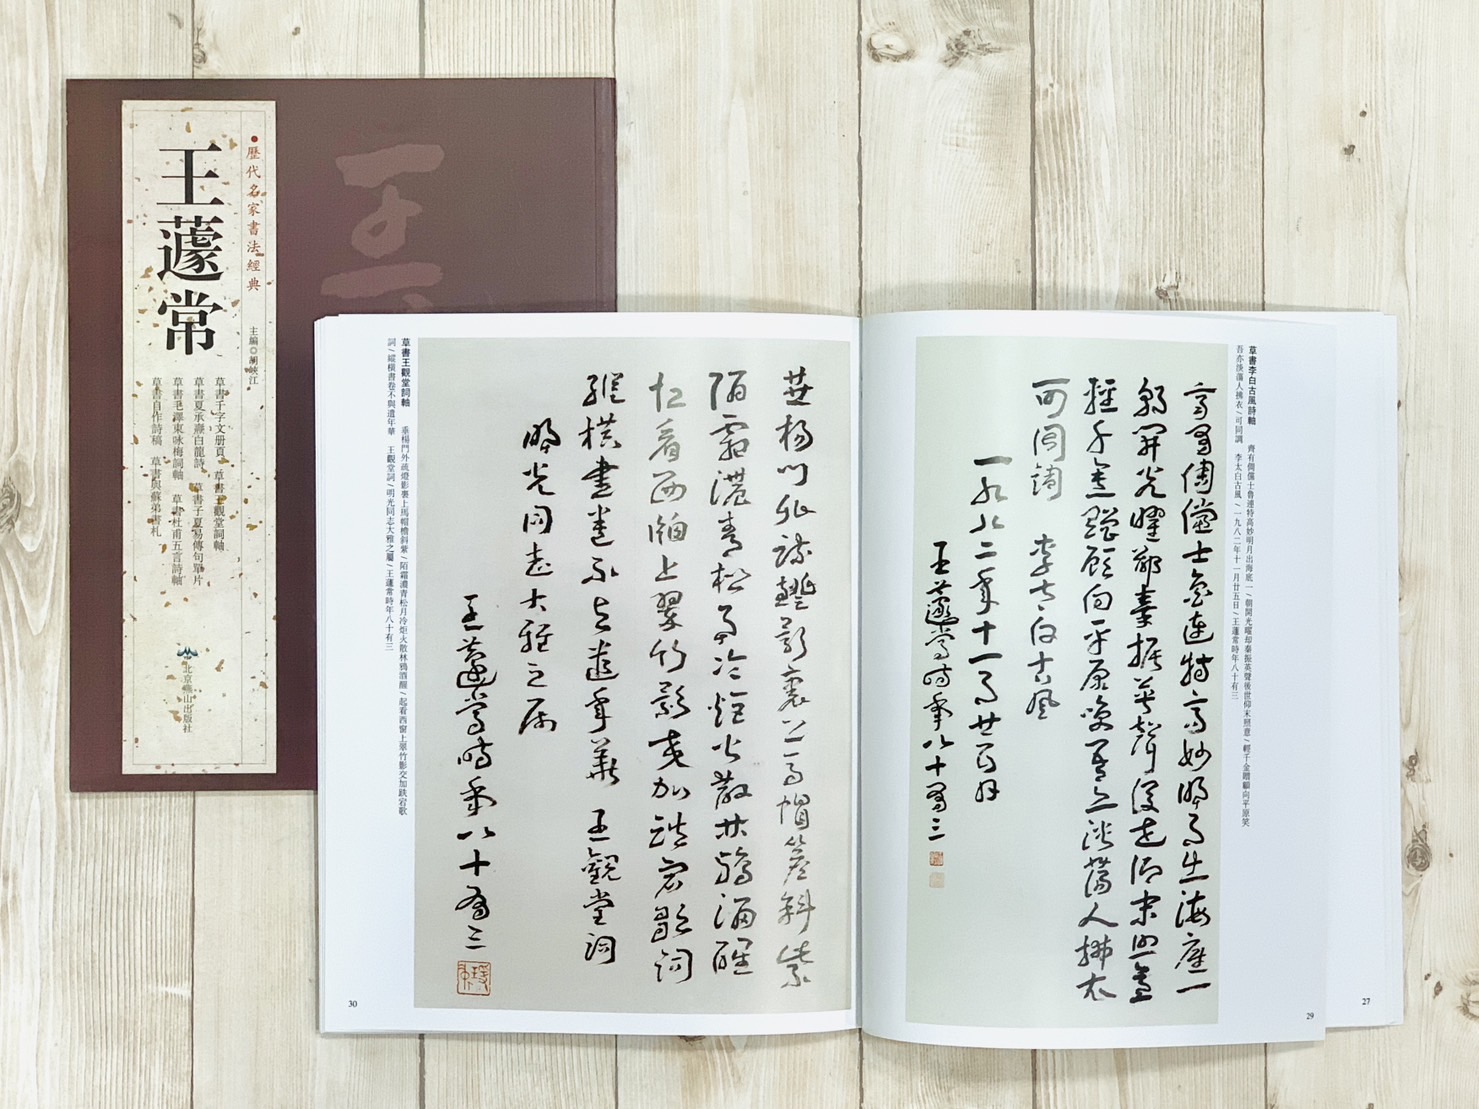 歷代名家書法經典
王蘧常
主編◎胡峽江
草書千字文册頁　草書王觀堂詞軸
草書夏承燾白龍詩　草書子夏易傳句單片
草書毛澤東咏梅詞軸　草書杜甫五言詩軸
草書自作詩稿　草書與蘇弟書札
北京燕山出版社
王
草書王觀堂詞軸　垂楊門外疏燈影裹上馬帽檐斜紫/陌霜濃青松月冷炬火散林鴉酒醒/起看西窗上翠竹影交加跌宕歌
詞/縱横書卷不與遣年華　王觀堂詞/明光同志大雅之屬/王蘧常時年八十有三
垂楊門外疏燈影裹上馬帽檐斜紫
陌霜濃青松月冷炬火散林鴉酒醒
起看西窗上翠竹影交加跌宕歌詞
縱横書卷不與遣年華　王觀堂詞
明光同志大雅之屬
王蘧常時年八十有三
30
草書李白古風詩軸　齊有倜儻士魯連特高妙明月出海底一/朝開光曜却秦振英聲後世仰末照意/輕千金贈顧向平原笑
吾亦淡蕩人拂衣/可同調　李太白古風/一九八二年十一月廿五日/王蘧常時年八十有三
齊有倜儻士魯連特高妙明月出海底一
朝開光曜却秦振英聲後世仰末照意
輕千金贈顧向平原笑吾亦淡蕩人拂衣
可同調　李太白古風
一九八二年十一月廿五日
王蘧常時年八十有三
29
27